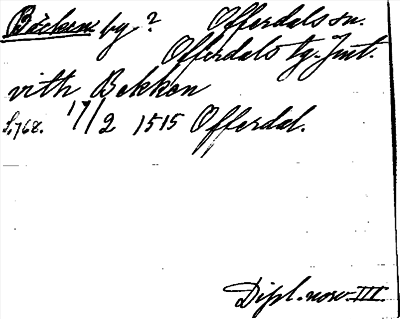 Bäcken by? Offerdals sn.
Offerdals tg. Jmt.
vith Bekken
S. 768. 17/2 1515 Offerdal.
Dipl. norv. III.